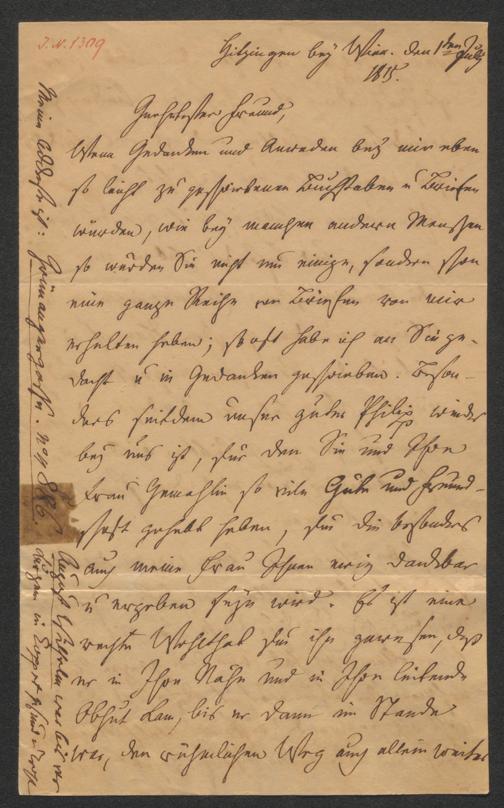 J. N. 1309
Hitzingen bey Wien. den 1ten July
1815.
Geehrtester Freund,
Wenn Gedanken und Anreden bey mir eben
so leicht zu geschriebenen Buchstaben u Briefen
würden, wie bey manchen andern Menschen
so würden Sie nicht nur einige, sondern schon
eine ganze Reihe von Briefen von mir
erhalten haben; so oft habe ich an Sie ge-
dacht u in Gedanken geschrieben. Beson-
ders seitdem unser guter Philip wieder
bey uns ist, für den Sie und Ihre
Frau Gemahlin so viele Güte und Freund-
schaft gehabt haben, für die besonders
auch meine Frau Ihnen ewig dankbar
u ergeben seyn wird. Es ist eine
rechte Wohlthat für ihn gewesen, daß
er in Ihre Nähe und in Ihre leitende
Obhut kam, bis er dann im Stande
war, den rühmlichen Weg auch allein weiter
Meine Addresse ist: Grünangergasse. No 886.
August Wilhelm war bis vor
kurzem in